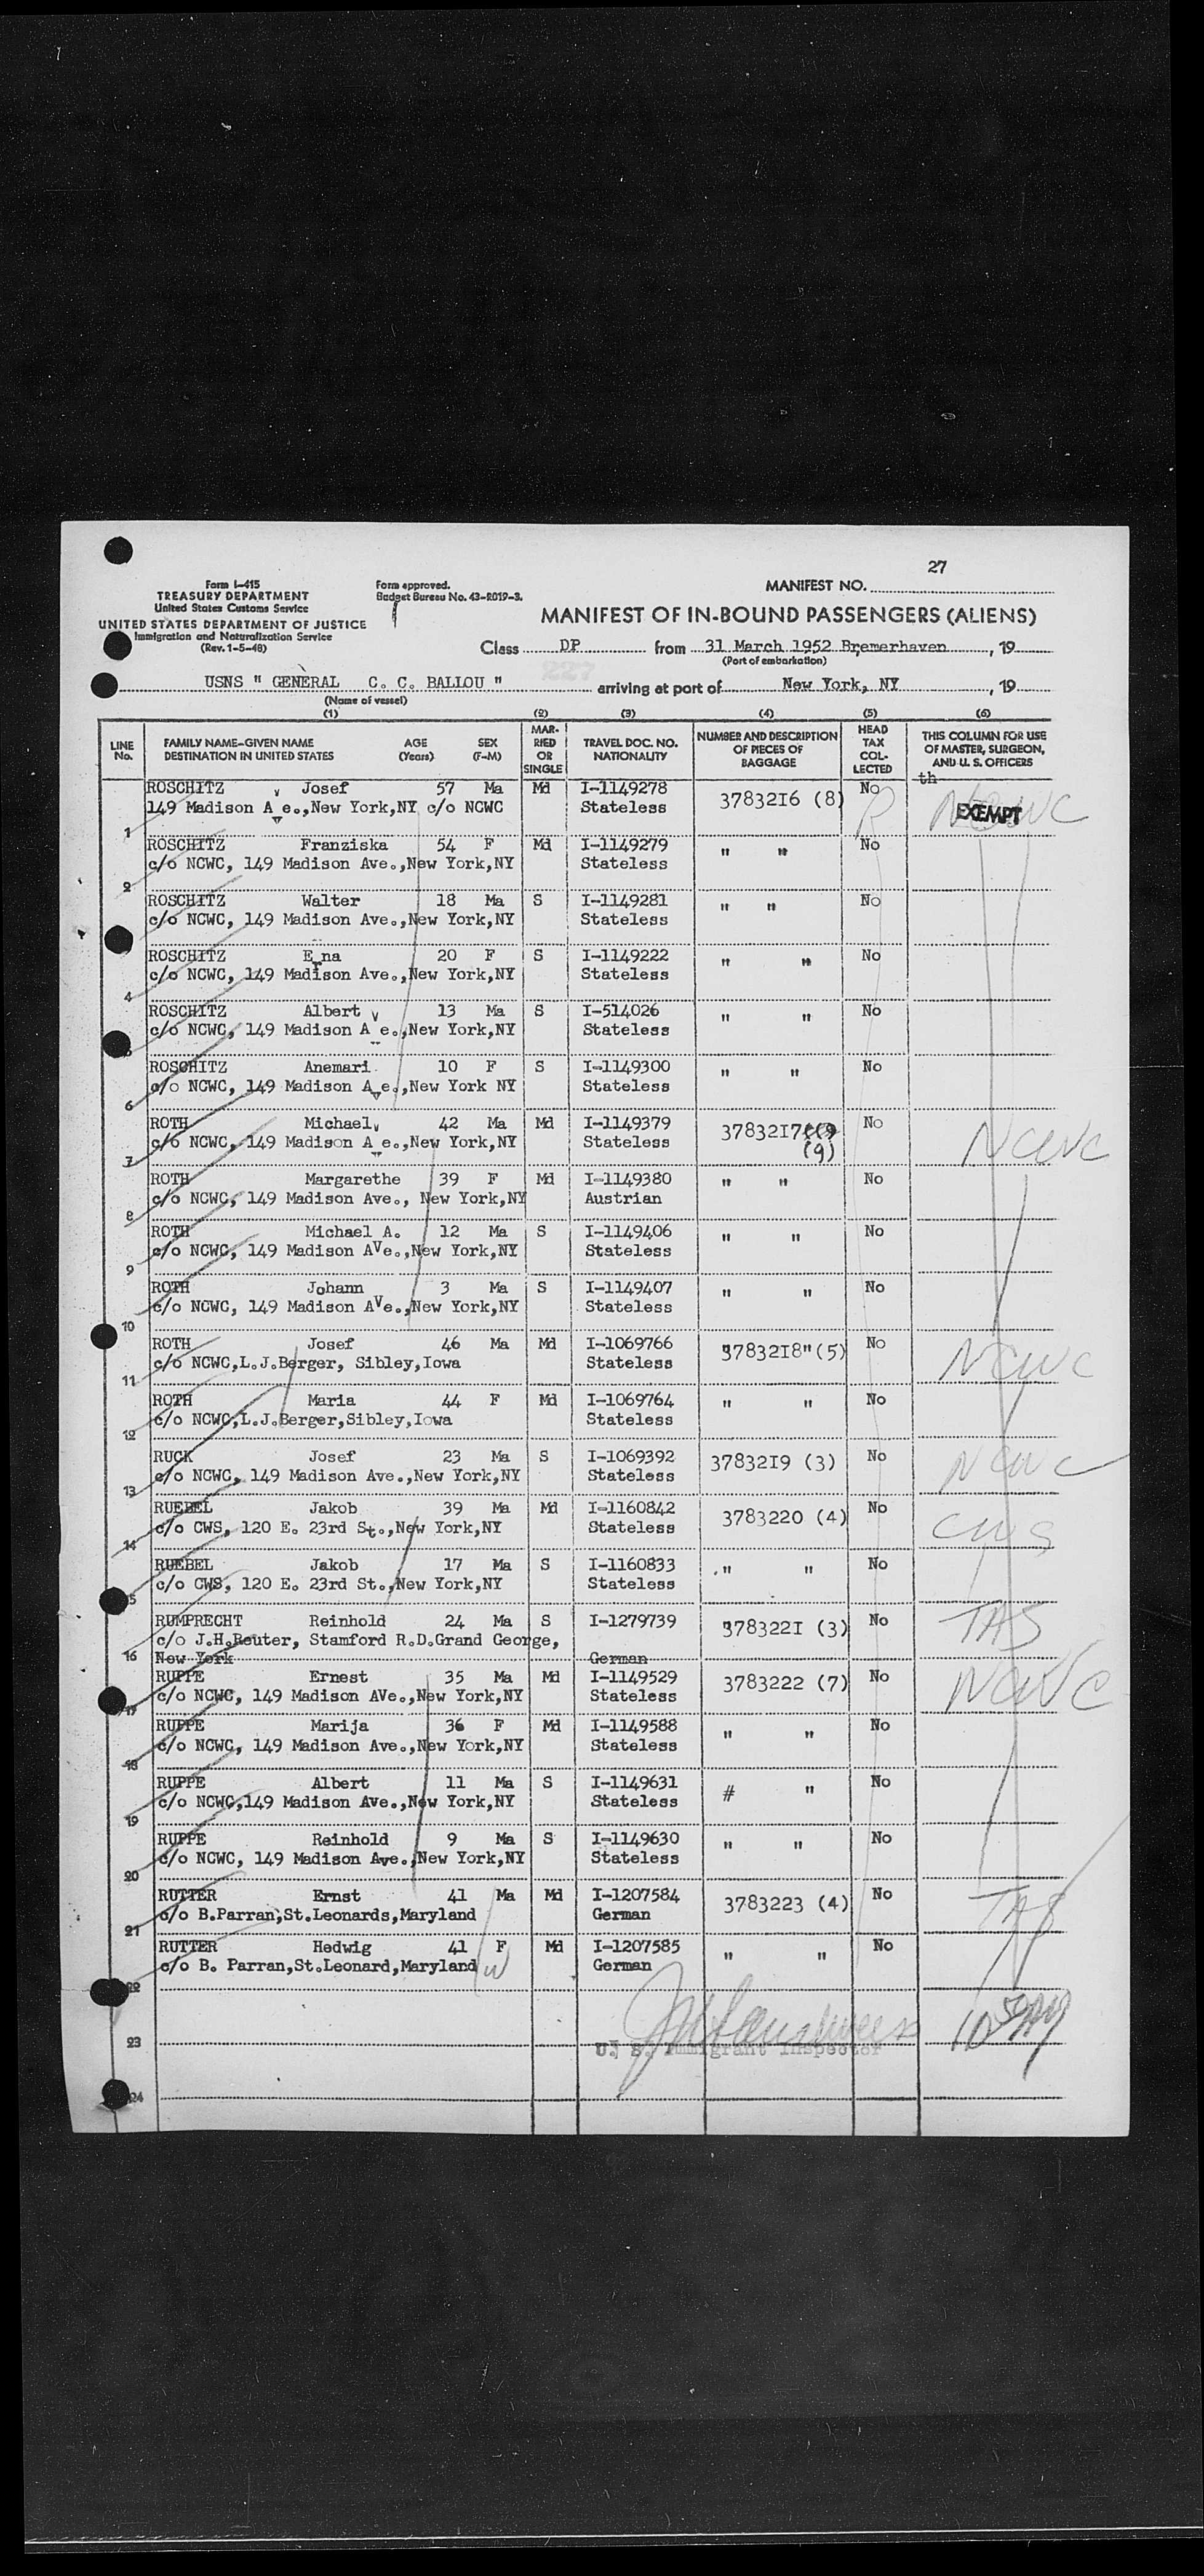 27
Form I-415
TREASURY DEPARTMENT
United States Customs Service
UNITED STATES DEPARTMENT OF JUSTICE
Immigration and Naturalization Service
(Rev. 1-5-48)
Form approved.
Budget Bureau No. 43-R019-3.
MANIFEST NO.
MANIFEST OF IN-BOUND PASSENGERS (ALIENS)
Class DP from 31 March 1952 Bremerhaven, 19
(Port of embarkation)
227
USNS " GENERAL C. C. BALLOU " arriving at port of New York, NY, 19
(Name of vessel)
(1) (2) (3) (4) (5) (6)
LINE No. FAMILY NAME-GIVEN NAME DESTINATION IN UNITED STATES AGE (Years) SEX (F-M) MARRIED OR SINGLE TRAVEL DOC. NO. NATIONALITY NUMBER AND DESCRIPTION OF PIECES OF BAGGAGE HEAD TAX COLLECTED THIS COLUMN FOR USE OF MASTER, SURGEON, AND U. S. OFFICERS
th
ROSCHITZ Josef 57 Ma Md I-1149278 3783216 (8) No NCWC EXEMPT
1 149 Madison Ave.,New York,NY c/o NCWC Stateless R
ROSCHITZ Franziska 54 F Md I-1149279 " " No
2 c/o NCWC, 149 Madison Ave.,New York,NY Stateless
ROSCHITZ Walter 18 Ma S I-1149281 " " No
c/o NCWC, 149 Madison Ave.,New York,NY Stateless
ROSCHITZ Erna 20 F S I-1149222 " " No
4 c/o NCWC, 149 Madison Ave.,New York,NY Stateless
ROSCHITZ Albert 13 Ma S I-514026 " " No
5 c/o NCWC, 149 Madison A e.,New York,NY Stateless
ROSCHITZ Anemari 10 F S I-1149300 " " No
6 c/o NCWC, 149 Madison Ave.,New York NY Stateless
ROTH Michael 42 Ma Md I-1149379 3783217 (9) No NCWC
7 c/o NCWC, 149 Madison A e.,New York,NY Stateless
ROTH Margarethe 39 F Md I-1149380 " " No
8 c/o NCWC, 149 Madison Ave., New York,NY Austrian
ROTH Michael A. 12 Ma S I-1149406 " " No
9 c/o NCWC, 149 Madison AVe.,New York,NY Stateless
ROTH Johann 3 Ma S I-1149407 " " No
10 c/o NCWC, 149 Madison AVe.,New York,NY Stateless
ROTH Josef 46 Ma Md I-1069766 3783218"(5) No NCWC
11 c/o NCWC,L.J.Berger, Sibley,Iowa Stateless
ROTH Maria 44 F Md I-1069764 " " No
12 c/o NCWC,L.J.Berger,Sibley,Iowa Stateless
RUCK Josef 23 Ma S I-1069392 3783219 (3) No NCWC
13 c/o NCWC, 149 Madison Ave.,New York,NY Stateless
RUEBEL Jakob 39 Ma Md I-1160842 3783220 (4) No CWS
14 c/o CWS, 120 E. 23rd St.,New York,NY Stateless
RUEBEL Jakob 17 Ma S I-1160833 " " No
15 c/o CWS, 120 E. 23rd St.,New York,NY Stateless
RUMPRECHT Reinhold 24 Ma S I-1279739 3783221 (3) No TAS
c/o J.H.Reuter, Stamford R.D.Grand George,
16 New York German
RUPPE Ernest 35 Ma Md I-1149529 3783222 (7) No NCWC
17 c/o NCWC, 149 Madison AVe.,New York,NY Stateless
RUPPE Marija 36 F Md I-1149588 " " No
18 c/o NCWC, 149 Madison Ave.,New York,NY Stateless
RUPPE Albert 11 Ma S I-1149631 # " No
19 c/o NCWC,149 Madison Ave.,New York,NY Stateless
RUPPE Reinhold 9 Ma S I-1149630 " " No
20 c/o NCWC, 149 Madison Ave.,New York,NY Stateless
RUTTER Ernst 41 Ma Md I-1207584 3783223 (4) No TAS
21 c/o B.Parran,St.Leonards,Maryland German
RUTTER Hedwig 41 F Md I-1207585 " " No
22 c/o B. Parran,St.Leonard,Maryland German
23 U. S. Immigrant Inspector
24